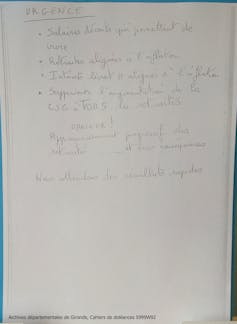 URGENCE
• Salaires décents qui permettent de
vivre
• Retraites alignées à l'inflation
• Intérêts livret A alignés à l'inflation
• Supprimer l'augmentation de la
CSG à TOUS les retraités
URGENCE !
Appauvrissement progressif des
retraités et
Nous attendons des résultats rapides
Archives départementales de Gironde, Cahiers de doléances 1999W92